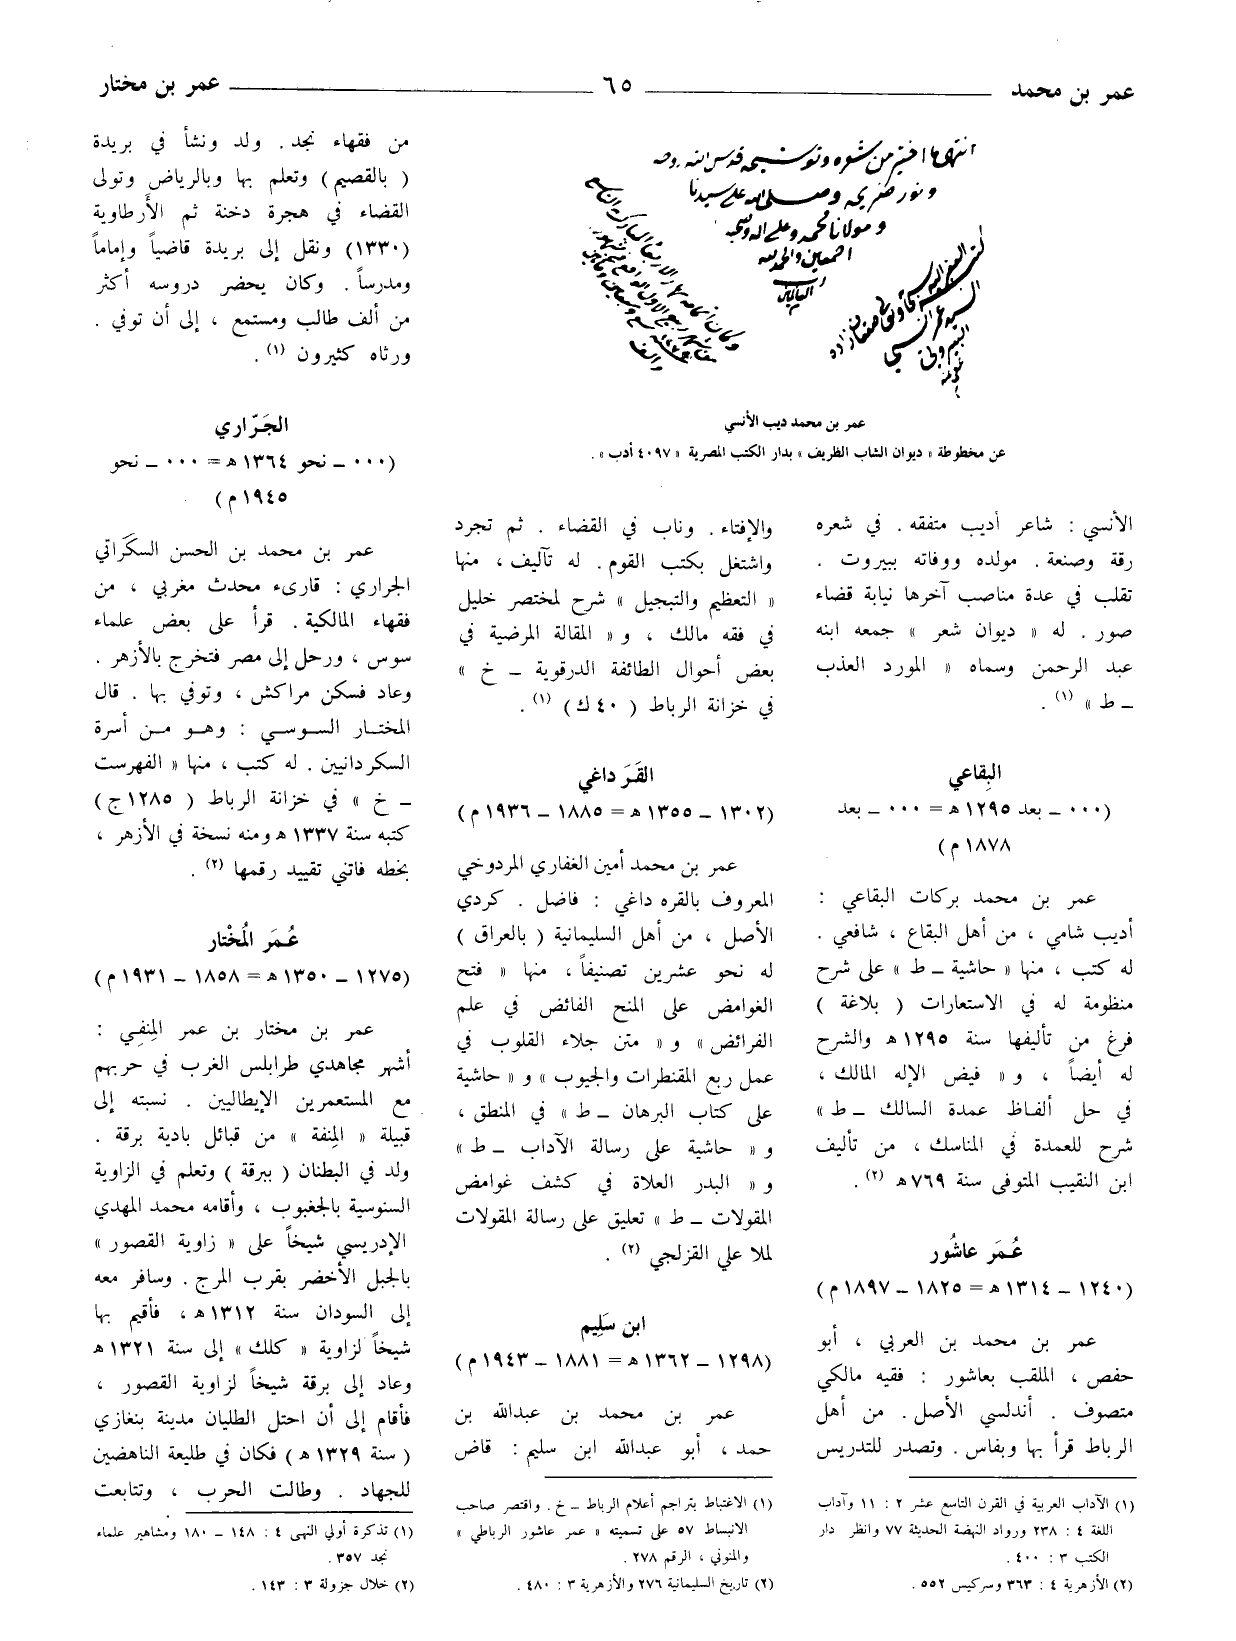 عمر بن محمد ٦٥ عمر بن مختار
انتهى ما اختير من شعره
ونور ضريحه وصلى الله على سيدنا
ومولانا محمد وعلى اله وصحبه
اجمعين والحمد لله
رب العالمين
عمر بن محمد ديب الأنسي
عن مخطوطة « ديوان الشاب الظريف » بدار الكتب المصرية « ٤٠٩٧ أدب » .
الأنسي : شاعر أديب متفقه . في شعره
رقة وصنعة . مولده ووفاته ببيروت .
تقلب في عدة مناصب آخرها نيابة قضاء
صور . له « ديوان شعر » جمعه ابنه
عبد الرحمن وسماه « المورد العذب
ـ ط » (١) .
البِقاعي
(٠٠٠ ـ بعد ١٢٩٥ ه‍ = ٠٠٠ ـ بعد
١٨٧٨ م)
عمر بن محمد بركات البقاعي :
أديب شامي ، من أهل البقاع ، شافعي .
له كتب ، منها « حاشية ـ ط » على شرح
منظومة له في الاستعارات ( بلاغة )
فرغ من تأليفها سنة ١٢٩٥ ه‍ والشرح
له أيضاً ، و « فيض الإله المالك ،
في حل ألفاظ عمدة السالك ـ ط »
شرح للعمدة في المناسك ، من تأليف
ابن النقيب المتوفى سنة ٧٦٩ ه‍ (٢) .
عُمَر عاشُور
(١٢٤٠ ـ ١٣١٤ ه‍ = ١٨٢٥ ـ ١٨٩٧ م)
عمر بن محمد بن العربي ، أبو
حفص ، الملقب بعاشور : فقيه مالكي
متصوف . أندلسي الأصل . من أهل
الرباط قرأ بها وبفاس . وتصدر للتدريس
(١) الآداب العربية في القرن التاسع عشر ٢ : ١١ وآداب
اللغة ٤ : ٢٣٨ ورواد النهضة الحديثة ٧٧ وانظر دار
الكتب ٣ : ٤٠٠ .
(٢) الأزهرية ٤ : ٣٦٣ وسركيس ٥٥٢ .
والإفتاء . وناب في القضاء . ثم تجرد
واشتغل بكتب القوم . له تآليف ، منها
« التعظيم والتبجيل » شرح لمختصر خليل
في فقه مالك ، و « المقالة المرضية في
بعض أحوال الطائفة الدرقوية ـ خ »
في خزانة الرباط ( ٤٠ ك) (١) .
القَرَه داغي
(١٣٠٢ ـ ١٣٥٥ ه‍ = ١٨٨٥ ـ ١٩٣٦ م)
عمر بن محمد أمين الغفاري المردوخي
المعروف بالقره داغي : فاضل . كردي
الأصل ، من أهل السليمانية ( بالعراق )
له نحو عشرين تصنيفاً ، منها « فتح
الغوامض على المنح الفائض في علم
الفرائض » و « متن جلاء القلوب في
عمل ربع المقنطرات والجيوب » و « حاشية
على كتاب البرهان ـ ط » في المنطق ،
و « حاشية على رسالة الآداب ـ ط »
و « البدر العلاة في كشف غوامض
المقولات ـ ط » تعليق على رسالة المقولات
لملا علي القزلجي (٢) .
ابن سَلِيم
(١٢٩٨ ـ ١٣٦٢ ه‍ = ١٨٨١ ـ ١٩٤٣ م)
عمر بن محمد بن عبدالله بن
حمد ، أبو عبدالله ابن سليم : قاض
(١) الاغتباط بتراجم أعلام الرباط ـ خ . واقتصر صاحب
الانبساط ٥٧ على تسميته « عمر عاشور الرباطي »
والمنوني ، الرقم ٢٧٨ .
(٢) تاريخ السليمانية ٢٧٦ والأزهرية ٣ : ٤٨٠ .
من فقهاء نجد . ولد ونشأ في بريدة
( بالقصيم ) وتعلم بها وبالرياض وتولى
القضاء في هجرة دخنة ثم الأرطاوية
(١٣٣٠) ونقل إلى بريدة قاضياً وإماماً
ومدرساً . وكان يحضر دروسه أكثر
من ألف طالب ومستمع ، إلى أن توفي .
ورثاه كثيرون (١) .
الجَرّاري
(٠٠٠ ـ نحو ١٣٦٤ ه‍ = ٠٠٠ ـ نحو
١٩٤٥ م)
عمر بن محمد بن الحسن السكَراتي
الجراري : قارىء محدث مغربي ، من
فقهاء المالكية . قرأ على بعض علماء
سوس ، ورحل إلى مصر فتخرج بالأزهر .
وعاد فسكن مراكش ، وتوفي بها . قال
المختار السوسي : وهو من أسرة
السكردانيين . له كتب ، منها « الفهرست
ـ خ » في خزانة الرباط ( ١٢٨٥ ج)
كتبه سنة ١٣٣٧ ه‍ ومنه نسخة في الأزهر ،
بخطه فاتني تقييد رقمها (٢) .
عُمَر المُخْتار
(١٢٧٥ ـ ١٣٥٠ ه‍ = ١٨٥٨ ـ ١٩٣١ م)
عمر بن مختار بن عمر المِنفِي :
أشهر مجاهدي طرابلس الغرب في حربهم
مع المستعمرين الإيطاليين . نسبته إلى
قبيلة « المِنفة » من قبائل بادية برقة .
ولد في البطنان ( ببرقة ) وتعلم في الزاوية
السنوسية بالجغبوب ، وأقامه محمد المهدي
الإدريسي شيخاً على « زاوية القصور »
بالجبل الأخضر بقرب المرج . وسافر معه
إلى السودان سنة ١٣١٢ ه‍ ، فأقيم بها
شيخاً لزاوية « كلك » إلى سنة ١٣٢١ ه‍
وعاد إلى برقة شيخاً لزاوية القصور ،
فأقام إلى أن احتل الطليان مدينة بنغازي
( سنة ١٣٢٩ ه‍ ) فكان في طليعة الناهضين
للجهاد . وطالت الحرب ، وتتابعت
(١) تذكرة أولي النهى ٤ : ١٤٨ ـ ١٨٠ ومشاهير علماء
نجد ٣٥٧ .
(٢) خلال جزولة ٣ : ١٤٣ .